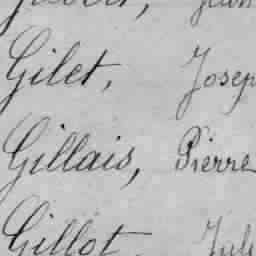 Gilet, Josep
Gillais, Pierre
Gillot, Jule